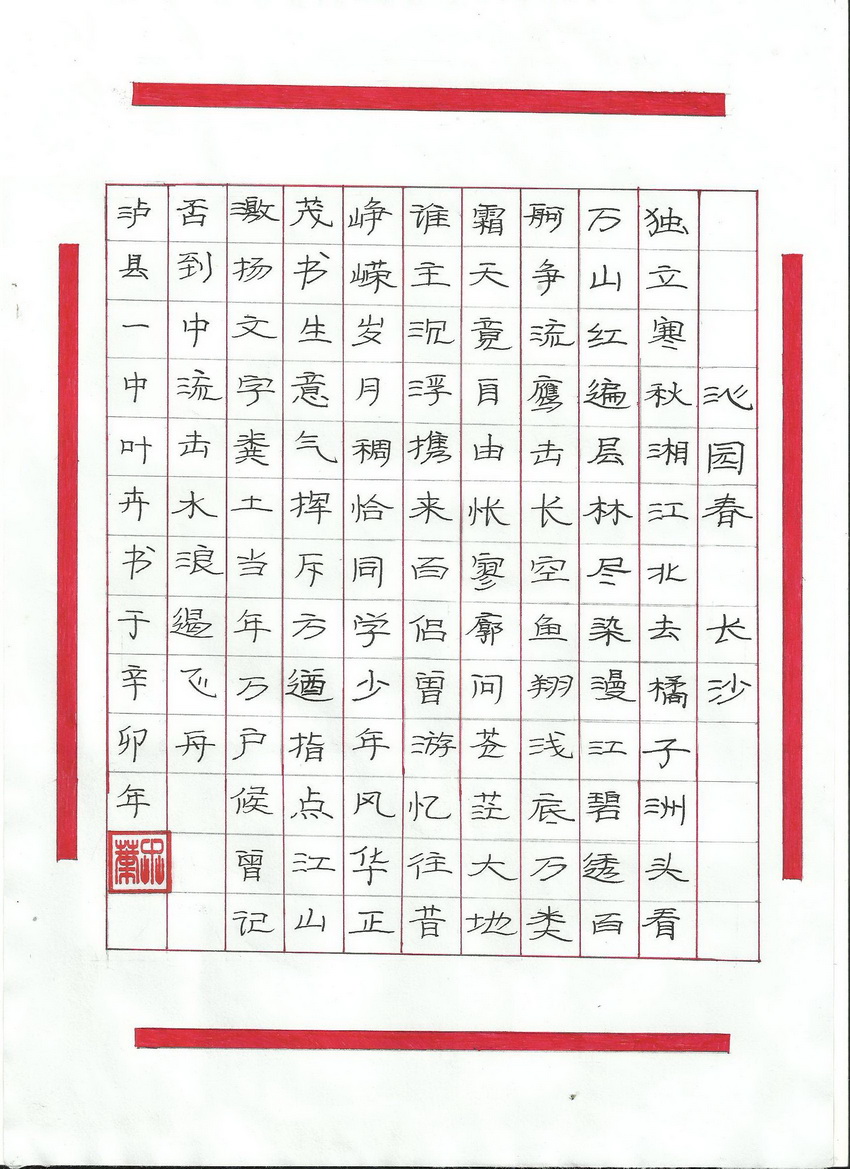 沁园春 长沙
独立寒秋湘江北去橘子洲头看
万山红遍层林尽染漫江碧透百
舸争流鹰击长空鱼翔浅底万类
霜天竟自由怅寥廓问苍茫大地
谁主沉浮携来百侣曾游忆往昔
峥嵘岁月稠恰同学少年风华正
茂书生意气挥斥方遒指点江山
激扬文字粪土当年万户候曾记
否到中流击水浪遏飞舟
泸县一中叶卉书于辛卯年